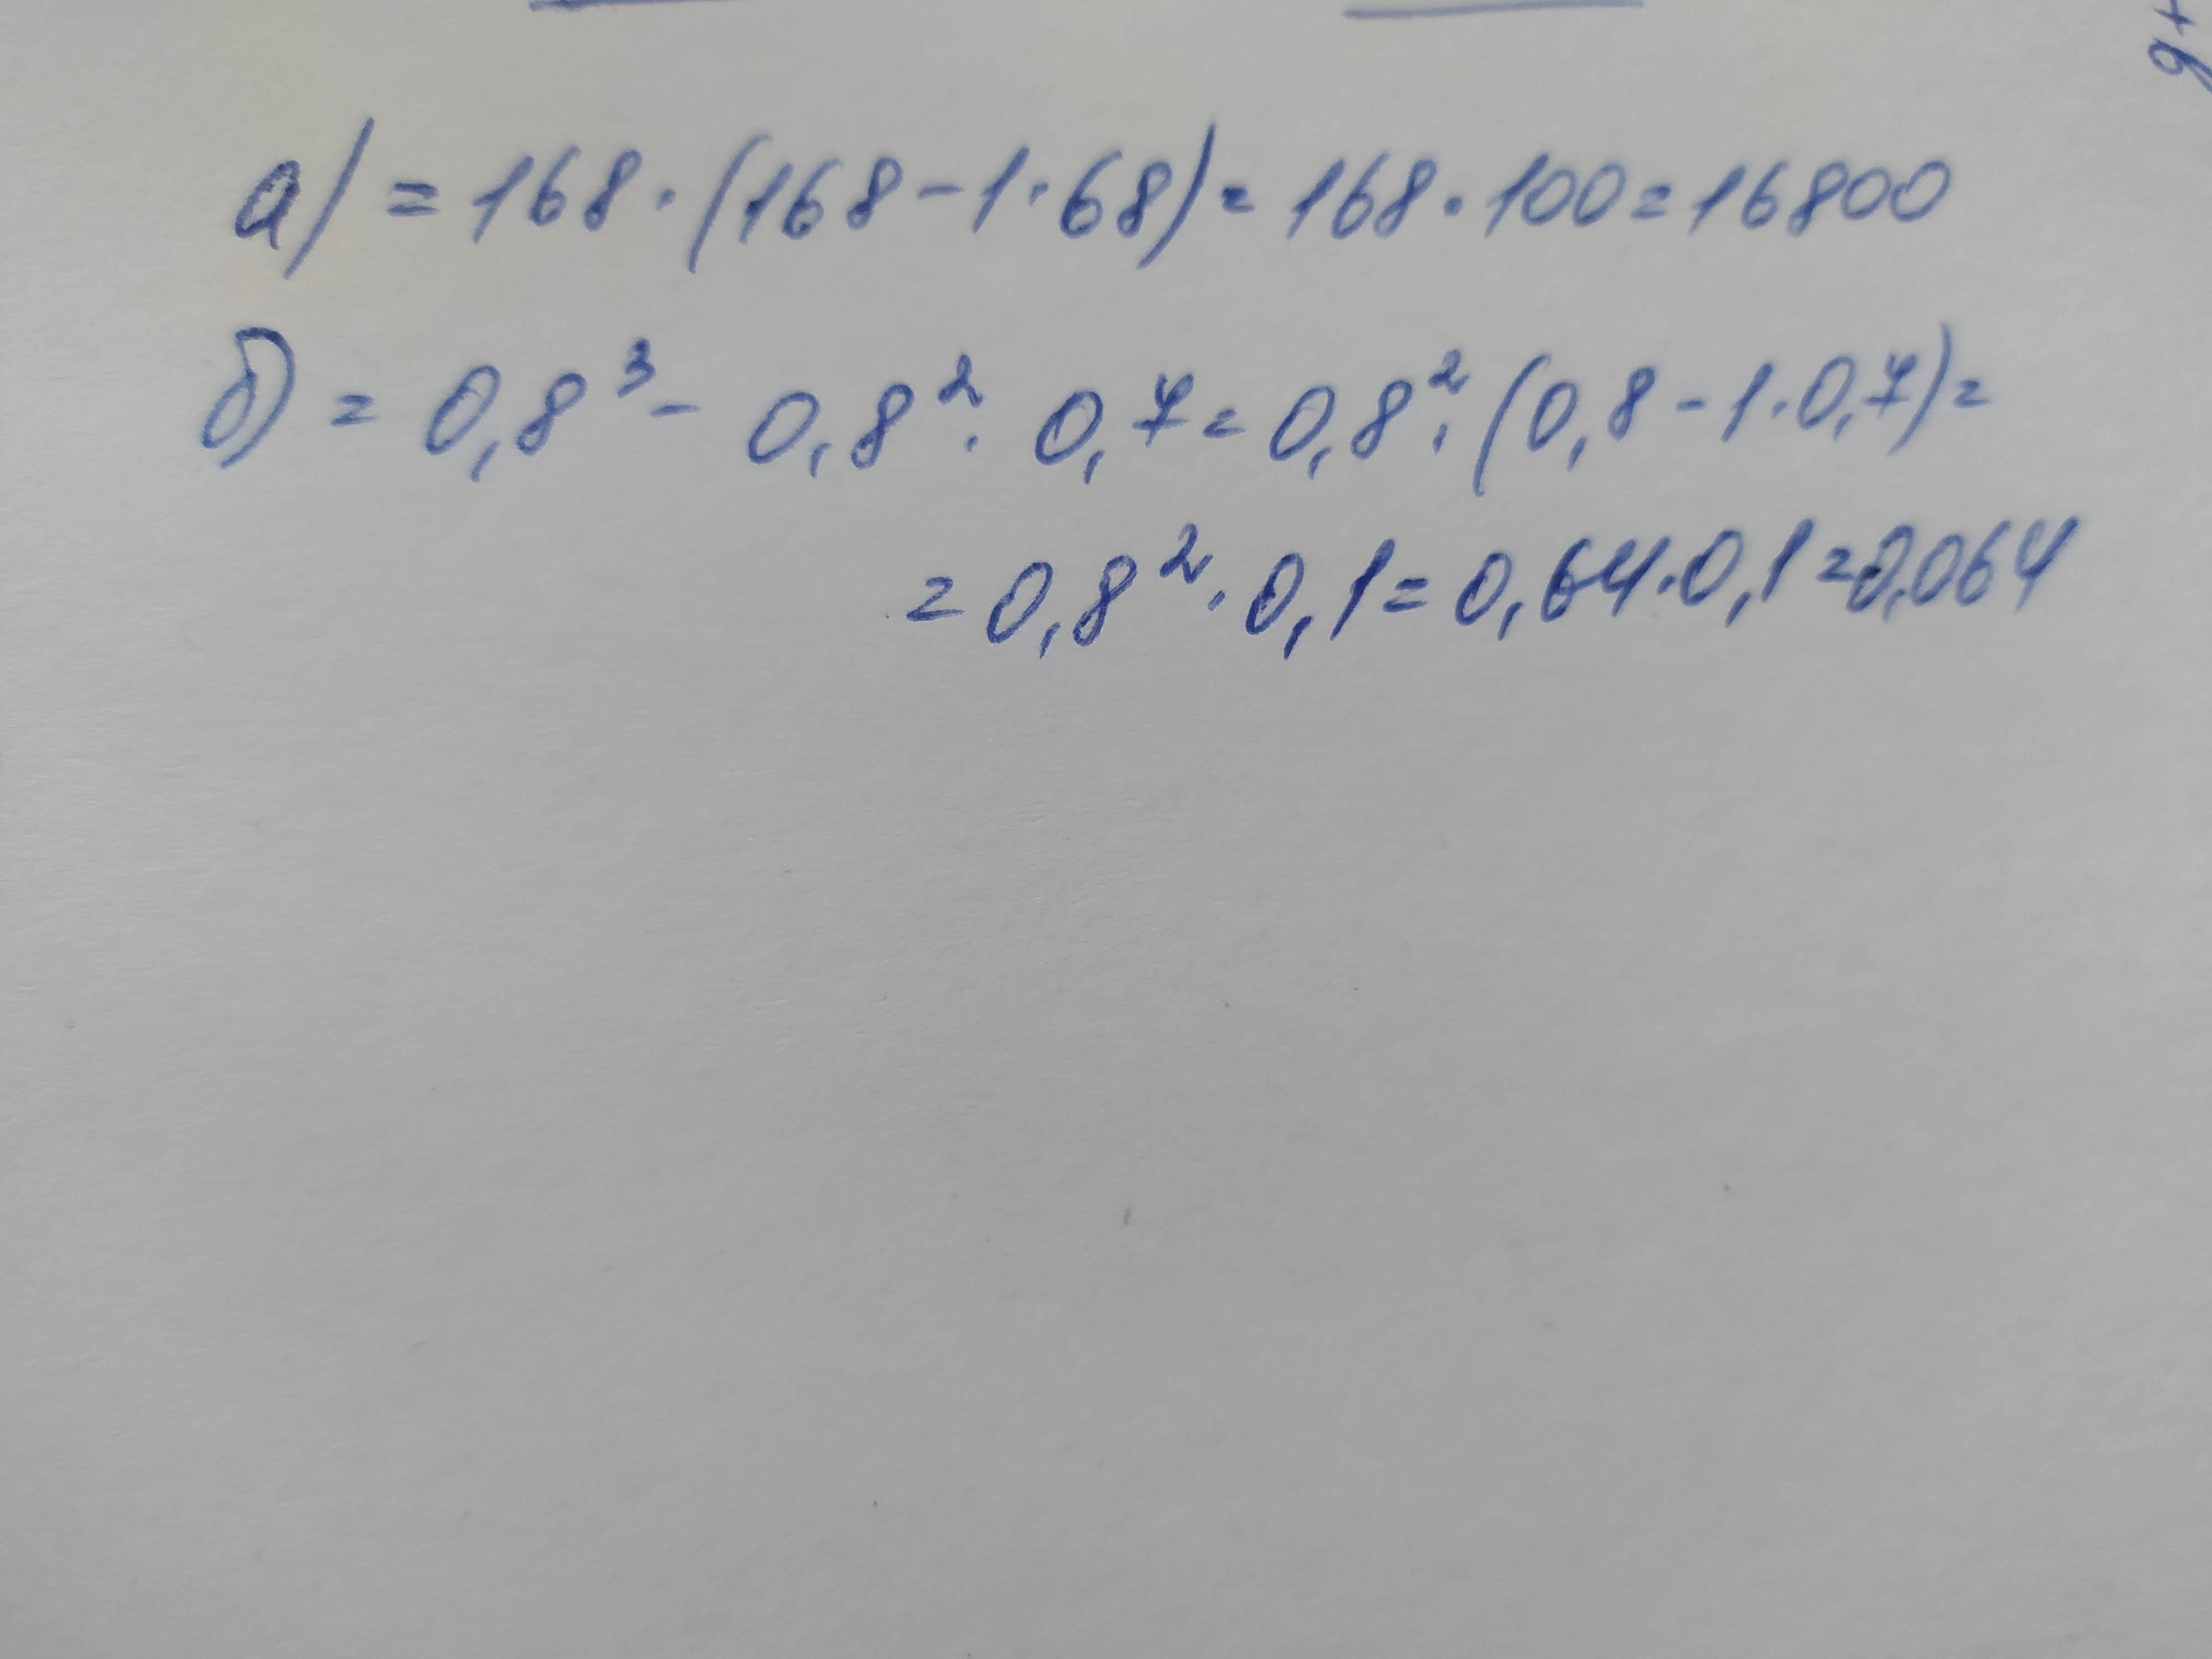 а) = 168 · (168 - 1 · 68) = 168 · 100 = 16800
б) = 0,8³ - 0,8² · 0,7 = 0,8² · (0,8 - 1 · 0,7) =
= 0,8² · 0,1 = 0,64 · 0,1 = 0,064